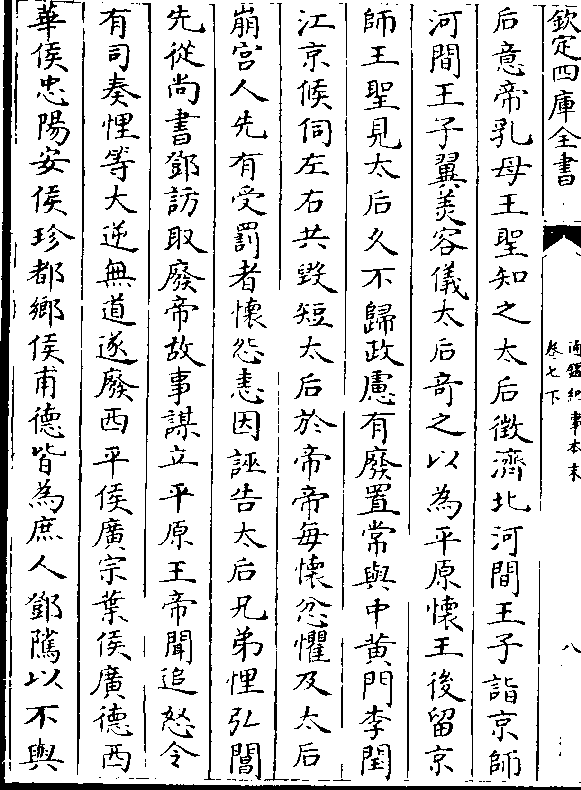 欽定四庫全書
通鑑紀事本末
卷七下
八
后意帝乳母王聖知之太后徵濟北河間王子詣京師
河間王子翼美容儀太后奇之以為平原懷王後留京
師王聖見太后久不歸政慮有廢置常與中黄門李閏
江京候伺左右共毀短太后於帝帝每懷忿懼及太后
崩宫人先有受罰者懷怨恚因誣告太后兄弟悝弘閶
先從尚書鄧訪取廢帝故事謀立平原王帝聞追怒令
有司奏悝等大逆無道遂廢西平侯廣宗葉侯廣德西
華侯忠陽安侯珍都鄉侯甫德皆為庶人鄧隲以不與